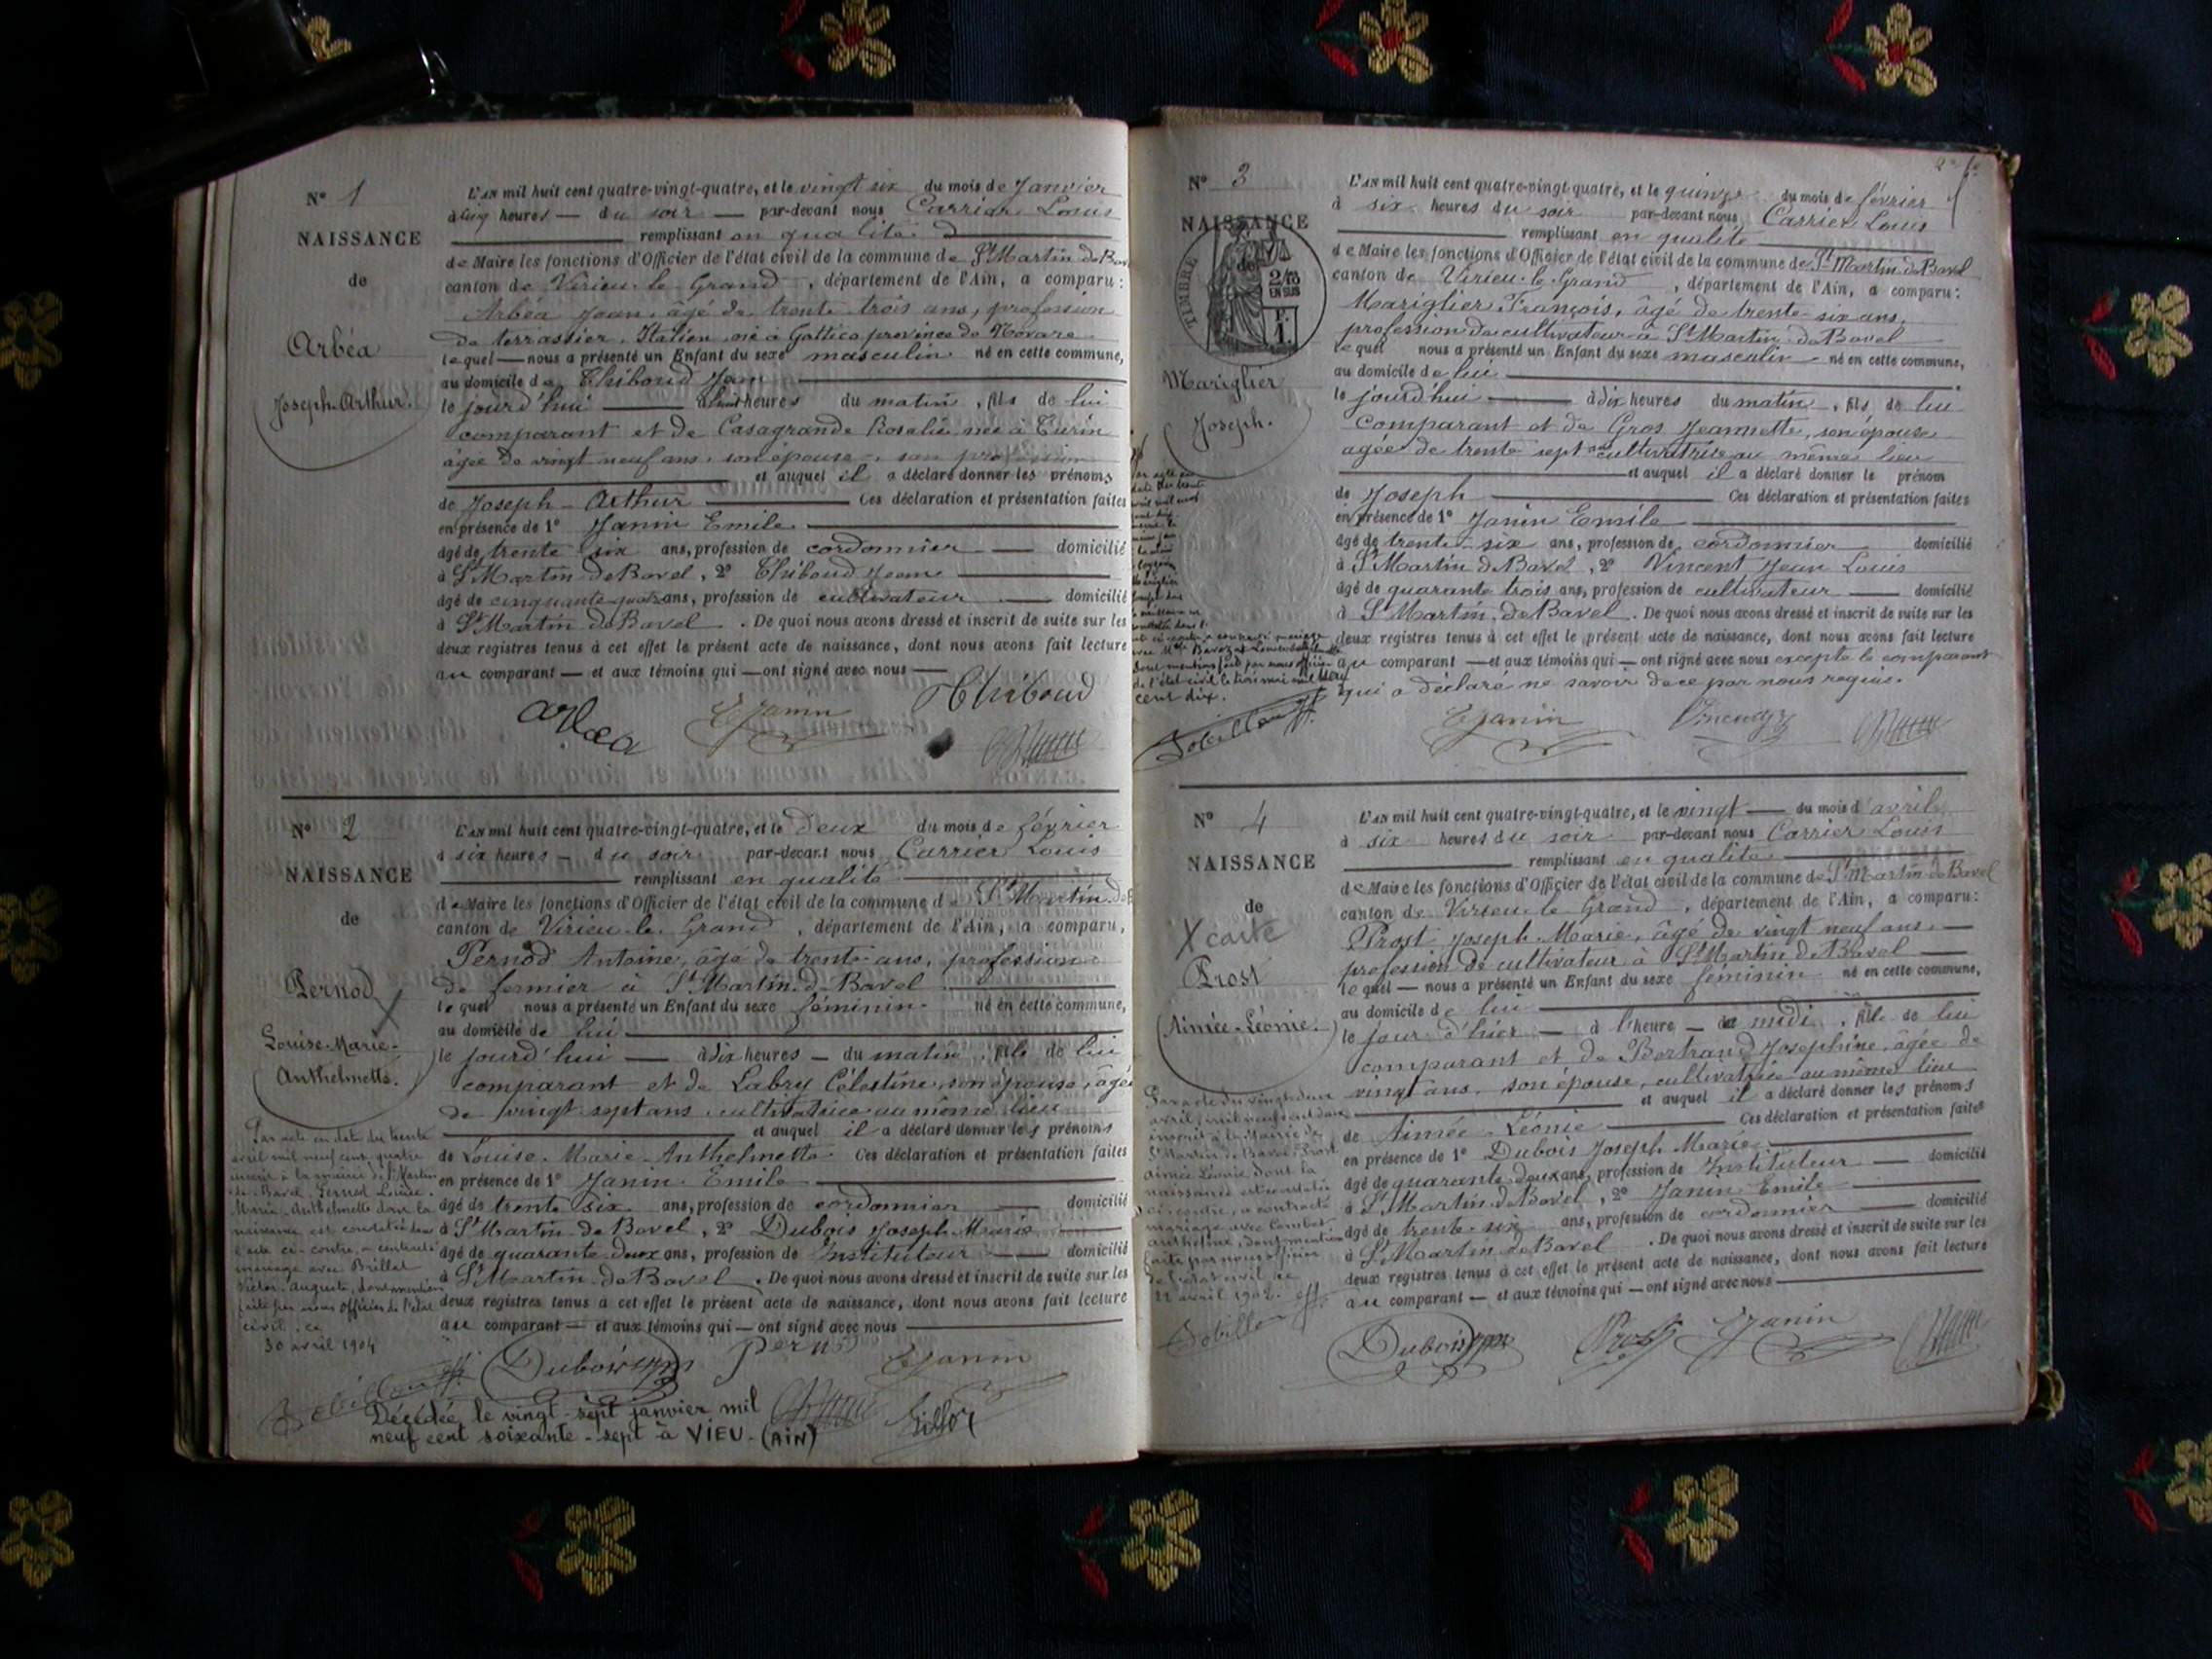 N° 1
NAISSANCE
de
Arbéa
Joseph-Arthur.
L'AN mil huit cent quatre-vingt-quatre, et le vingt six du mois de Janvier
à cinq heures — du soir — par-devant nous Carrier Louis
remplissant en qualité
de Maire les fonctions d'Officier de l'état civil de la commune de St Martin de Bavel
canton de Virieu-le-Grand, département de l'Ain, a comparu :
Arbéa Jean, âgé de trente trois ans, profession
de terrassier, Italien, né à Gattico province de Novare
lequel — nous a présenté un Enfant du sexe masculin né en cette commune,
au domicile de Thiboud Jean
le jourd'hui — à huit heures du matin, fils de lui
comparant et de Casagrande Rosalie née à Turin
âgée de vingt neuf ans, son épouse, sans profession
et auquel il a déclaré donner les prénoms
de Joseph-Arthur — Ces déclaration et présentation faites
en présence de 1° Janin Emile
âgé de trente six ans, profession de cordonnier — domicilié
à St Martin de Bavel, 2° Thiboud Jean
âgé de cinquante quatre ans, profession de cultivateur — domicilié
à St Martin de Bavel. De quoi nous avons dressé et inscrit de suite sur les
deux registres tenus à cet effet le présent acte de naissance, dont nous avons fait lecture
au comparant — et aux témoins qui — ont signé avec nous —
Arbea EJanin Thiboud
N° 2
NAISSANCE
de
Pernod
Louise-Marie-
Anthelmette.
L'AN mil huit cent quatre-vingt-quatre, et le deux du mois de février
à six heures — du soir par-devant nous Carrier Louis
remplissant en qualité
de Maire les fonctions d'Officier de l'état civil de la commune de St Martin de
canton de Virieu-le-Grand, département de l'Ain, a comparu,
Pernod Antoine, âgé de trente ans, profession
de fermier à St Martin-d-Bavel
lequel nous a présenté un Enfant du sexe féminin né en cette commune,
au domicile de lui
le jourd'hui — à dix heures — du matin, fille de lui
comparant et de Labry Célestine, son épouse, âgée
de vingt sept ans, cultivatrice au même lieu
et auquel il a déclaré donner les prénoms
de Louise-Marie-Anthelmette Ces déclaration et présentation faites
en présence de 1° Janin Emile
âgé de trente six ans, profession de cordonnier — domicilié
à St Martin de Bavel, 2° Dubois Joseph-Marie
âgé de quarante deux ans, profession de Instituteur — domicilié
à St Martin de Bavel. De quoi nous avons dressé et inscrit de suite sur les
deux registres tenus à cet effet le présent acte de naissance, dont nous avons fait lecture
au comparant — et aux témoins qui — ont signé avec nous
Par acte en date du trente
avril mil neuf cent quatre
inscrit à la mairie de St Martin
de Bavel, Pernod Louise
Marie-Anthelmette dont la
naissance est constatée dans
l'acte ci-contre, a contracté
mariage avec Brillat
Victor-Auguste, dont mention
faite par nous officier de l'état
civil, ce
30 avril 1904
Dubois Pernod EJanin
Décédée le vingt-sept janvier mil
neuf cent soixante-sept à VIEU-(AIN)
N° 3
NAISSANCE
de
TIMBRE
2/10
EN SUS
Mariglier
Joseph.
L'AN mil huit cent quatre-vingt-quatre, et le quinze du mois de février
à six heures du soir par-devant nous Carrier Louis
remplissant en qualité
de Maire les fonctions d'Officier de l'état civil de la commune de St Martin de Bavel
canton de Virieu-le-Grand, département de l'Ain, a comparu :
Mariglier François, âgé de trente six ans,
profession de cultivateur à St Martin de Bavel
lequel nous a présenté un Enfant du sexe masculin né en cette commune,
au domicile de lui
le jourd'hui — à dix heures du matin, fils de lui
comparant et de Gros Jeannette, son épouse
agée de trente sept ans cultivatrice au même lieu
et auquel il a déclaré donner le prénom
de Joseph — Ces déclaration et présentation faites
en présence de 1° Janin Emile
âgé de trente-six ans, profession de cordonnier domicilié
à St Martin de Bavel, 2° Vincent Jean Louis
âgé de quarante trois ans, profession de cultivateur — domicilié
à St Martin de Bavel. De quoi nous avons dressé et inscrit de suite sur les
deux registres tenus à cet effet le présent acte de naissance, dont nous avons fait lecture
au comparant — et aux témoins qui — ont signé avec nous excepté le comparant
qui a déclaré ne savoir de ce par nous requis.
dont mention faite par nous officier
de l'état civil le trois mai mil neuf
cent dix.
EJanin Vincent
N° 4
NAISSANCE
de
X carte
Prost
Aimée-Léonie.
L'AN mil huit cent quatre-vingt-quatre, et le vingt — du mois d'avril
à six heures du soir par-devant nous Carrier Louis
remplissant en qualité
de Maire les fonctions d'Officier de l'état civil de la commune de St Martin de Bavel
canton de Virieu-le-Grand, département de l'Ain, a comparu :
Prost Joseph-Marie, âgé de vingt neuf ans, —
profession de cultivateur à St Martin de Bavel —
lequel — nous a présenté un Enfant du sexe féminin né en cette commune,
au domicile de lui
le jour d'hier — à l'heure — de midi, fille de lui
comparant et de Bertrand Josephine, âgée de
vingt ans, son épouse, cultivatrice au même lieu
et auquel il a déclaré donner les prénoms
de Aimée-Léonie — Ces déclaration et présentation faites
en présence de 1° Dubois Joseph Marie
âgé de quarante deux ans, profession de Instituteur — domicilié
à St Martin de Bavel, 2° Janin Emile
âgé de trente-six ans, profession de cordonnier — domicilié
à St Martin de Bavel. De quoi nous avons dressé et inscrit de suite sur les
deux registres tenus à cet effet le présent acte de naissance, dont nous avons fait lecture
au comparant — et aux témoins qui — ont signé avec nous
Par acte du vingt deux
avril mil neuf cent deux
inscrit à la mairie de
St Martin de Bavel, Prost
Aimée Léonie, dont la
naissance est constatée
ci-contre, a contracté
mariage avec Combet
Anthelme, dont mention
faite par nous officier
de l'état civil ce
22 avril 1902.
Dubois Prost EJanin